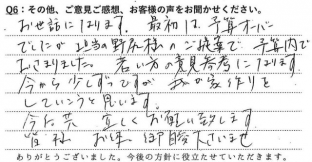 Q6：その他、ご意見ご感想、お客様の声をお聞かせください。
お世話になります。最初は、予算オーバー
でしたが 担当の野尻様のご提案で 予算内で
おさまりました。若い方の意見参考になります
今から少しずつですが 我が家作りを
していこうと思います。
今后共 宜しくお願い致します
皆様 お体 御自愛下さいませ
ありがとうございました。今後の方針に役立たせていただきます。